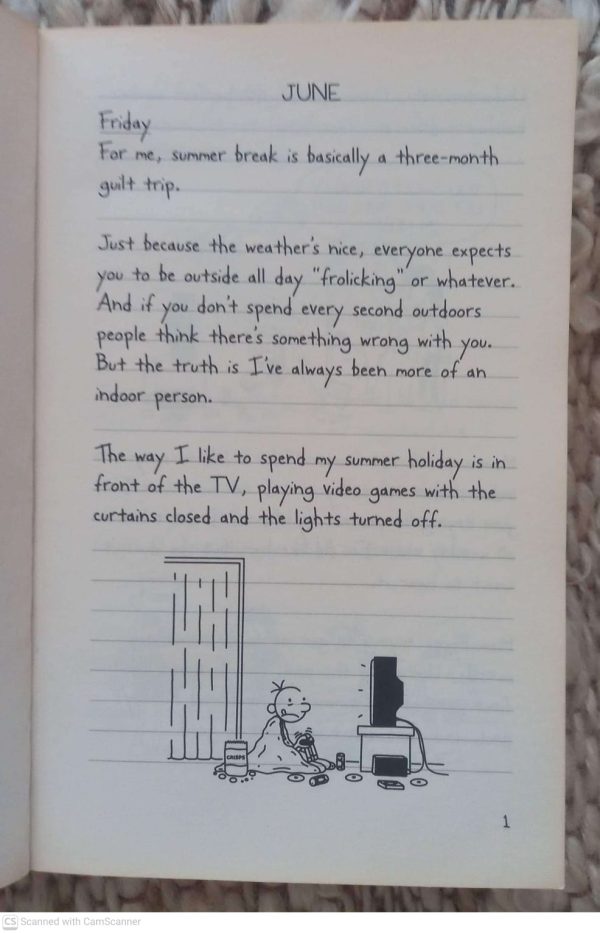 JUNE
Friday
For me, summer break is basically a three-month
guilt trip.
Just because the weather's nice, everyone expects
you to be outside all day "frolicking" or whatever.
And if you don't spend every second outdoors
people think there's something wrong with you.
But the truth is I've always been more of an
indoor person.
The way I like to spend my summer holiday is in
front of the TV, playing video games with the
curtains closed and the lights turned off.
CRISPS
1
CS Scanned with CamScanner